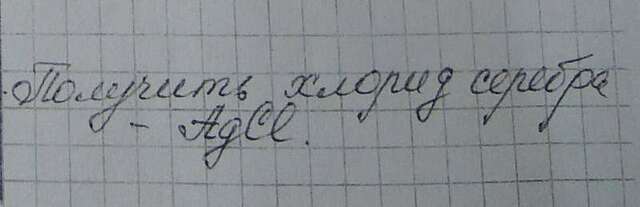 Получить хлорид серебра
- AgCl.